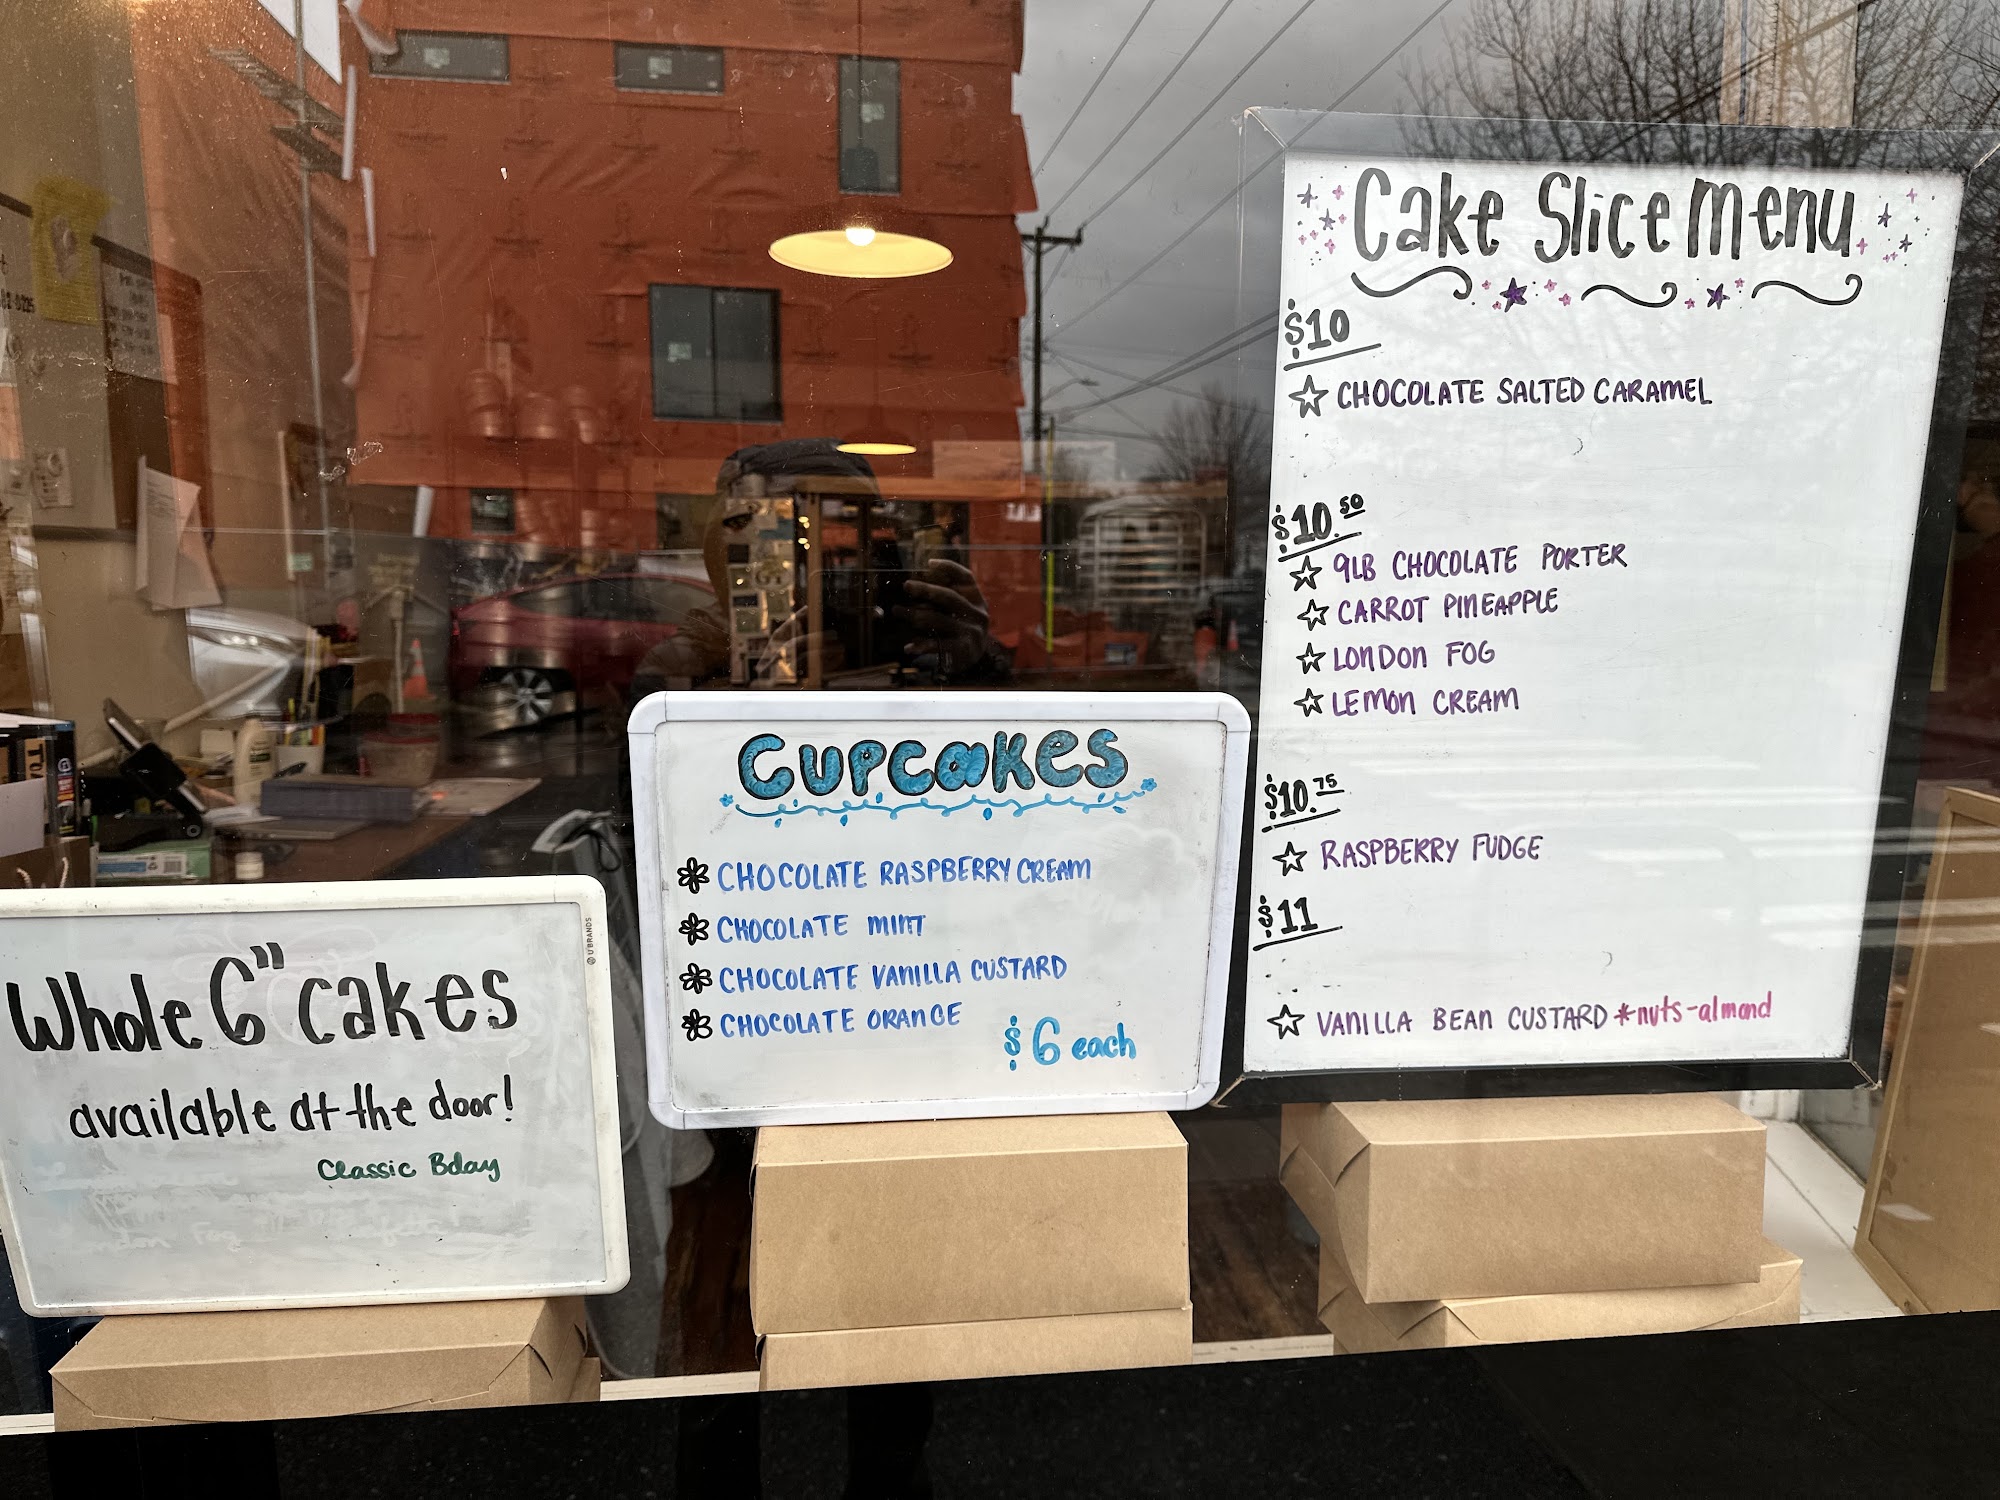 Whole 6" cakes
available at the door!
Classic Bday
U BRANDS
Cupcakes
CHOCOLATE RASPBERRY CREAM
CHOCOLATE MINT
CHOCOLATE VANILLA CUSTARD
CHOCOLATE ORANGE
$6 each
Cake Slice Menu
$10
CHOCOLATE SALTED CARAMEL
$10.50
9LB CHOCOLATE PORTER
CARROT PINEAPPLE
LONDON FOG
LEMON CREAM
$10.75
RASPBERRY FUDGE
$11
VANILLA BEAN CUSTARD *nuts-almond